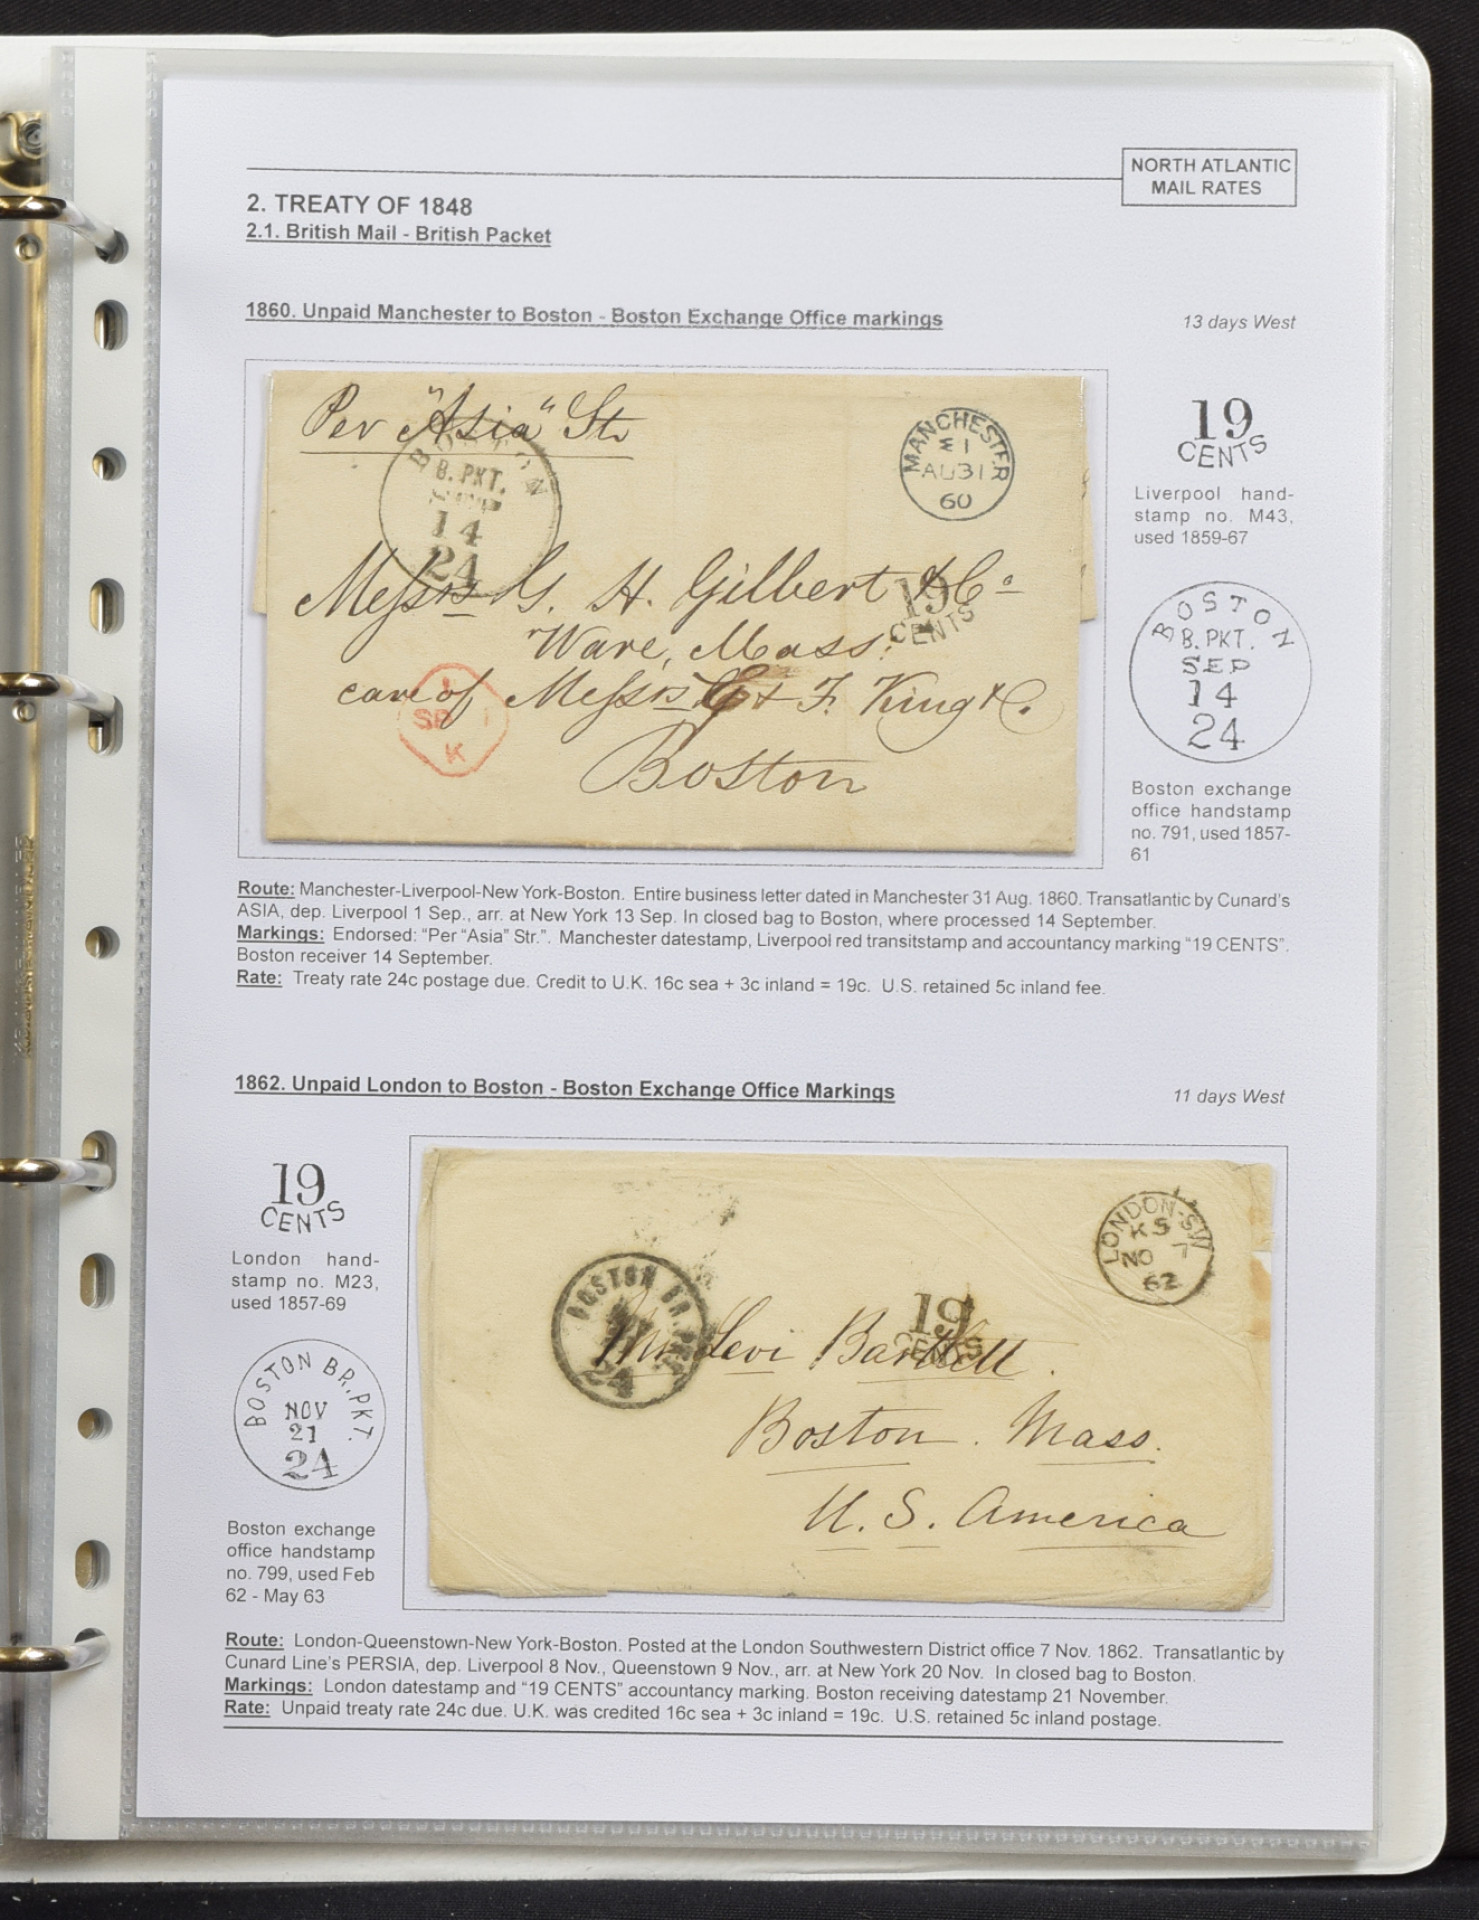 NORTH ATLANTIC
MAIL RATES
2. TREATY OF 1848
2.1. British Mail - British Packet
1860. Unpaid Manchester to Boston - Boston Exchange Office markings
13 days West
Per "Asia" Str
BOSTON
B. PKT.
14
24
MANCHESTER
AU31
60
Messrs G. H. Gilbert & Co
19
CENTS
Ware, Mass.
care of Messrs G & F. King & Co.
Boston
SP 1
K
19
CENTS
Liverpool hand-
stamp no. M43,
used 1859-67
BOSTON
B. PKT.
SEP
14
24
Boston exchange
office handstamp
no. 791, used 1857-
61
Route: Manchester-Liverpool-New York-Boston. Entire business letter dated in Manchester 31 Aug. 1860. Transatlantic by Cunard's
ASIA, dep. Liverpool 1 Sep., arr. at New York 13 Sep. In closed bag to Boston, where processed 14 September.
Markings: Endorsed: “Per “Asia” Str.”. Manchester datestamp, Liverpool red transitstamp and accountancy marking “19 CENTS”.
Boston receiver 14 September.
Rate: Treaty rate 24c postage due. Credit to U.K. 16c sea + 3c inland = 19c. U.S. retained 5c inland fee.
1862. Unpaid London to Boston - Boston Exchange Office Markings
11 days West
19
CENTS
London hand-
stamp no. M23,
used 1857-69
BOSTON BR. PKT.
NOV
21
24
Boston exchange
office handstamp
no. 799, used Feb
62 - May 63
LONDON-SW
KS
NO 7
62
BOSTON BR. PKT.
24
19
CENTS
Mr Levi Bartlett.
Boston. Mass.
U. S. America
Route: London-Queenstown-New York-Boston. Posted at the London Southwestern District office 7 Nov. 1862. Transatlantic by
Cunard Line's PERSIA, dep. Liverpool 8 Nov., Queenstown 9 Nov., arr. at New York 20 Nov. In closed bag to Boston.
Markings: London datestamp and “19 CENTS” accountancy marking. Boston receiving datestamp 21 November.
Rate: Unpaid treaty rate 24c due. U.K. was credited 16c sea + 3c inland = 19c. U.S. retained 5c inland postage.